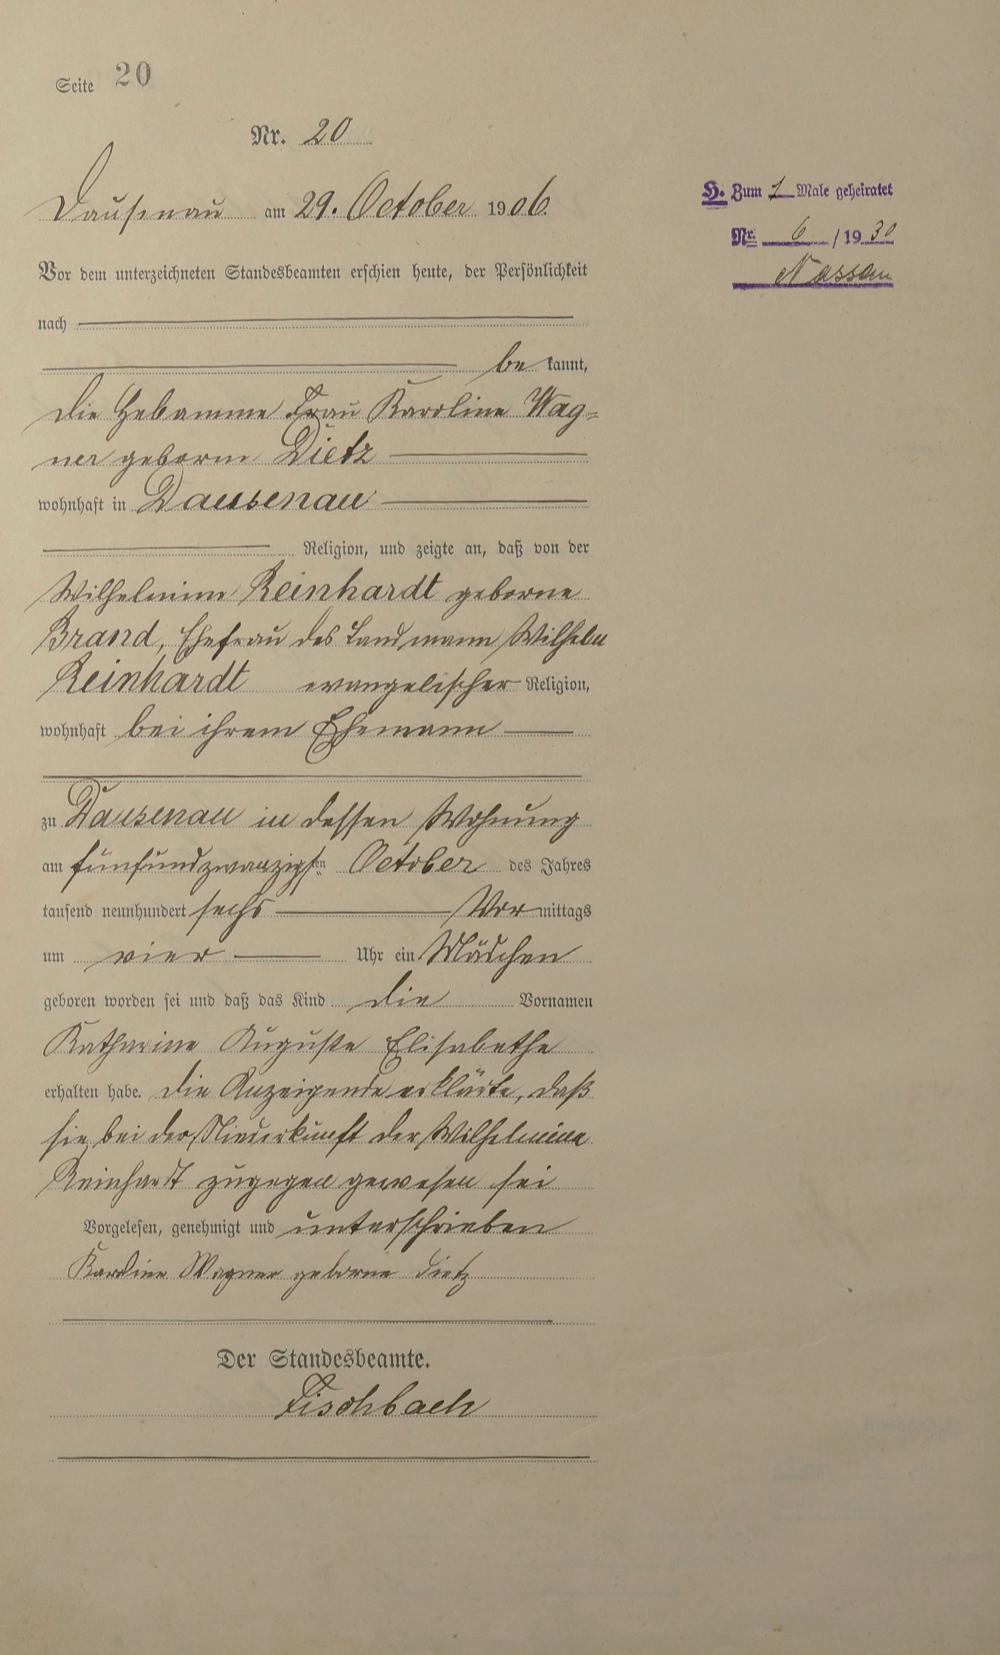 Seite 20
Nr. 20
Dausenau am 29. October 1906.
Vor dem unterzeichneten Standesbeamten erschien heute, der Persönlichkeit
nach
bekannt,
die Hebamme Frau Karoline Wag-
ner geborne Dietz
wohnhaft in Dausenau
Religion, und zeigte an, daß von der
Wilhelmine Reinhardt geborne
Brand, Ehefrau des Landmann Wilhelm
Reinhardt evangelischer Religion,
wohnhaft bei ihrem Ehemann
zu Dausenau in dessen Wohnung
am fünfundzwanzigsten October des Jahres
tausend neunhundert sechs Vormittags
um vier Uhr ein Mädchen
geboren worden sei und daß das Kind die Vornamen
Katharine Auguste Elisabethe
erhalten habe. Die Anzeigende erklärte, daß
sie bei der Niederkunft der Wilhelmine
Reinhardt zugegen gewesen sei
Vorgelesen, genehmigt und unterschrieben
Karoline Wagner geborne Dietz
Der Standesbeamte.
Fischbach
H. Zum 1 Male geheiratet
Nr. 6 /1930
Nassau